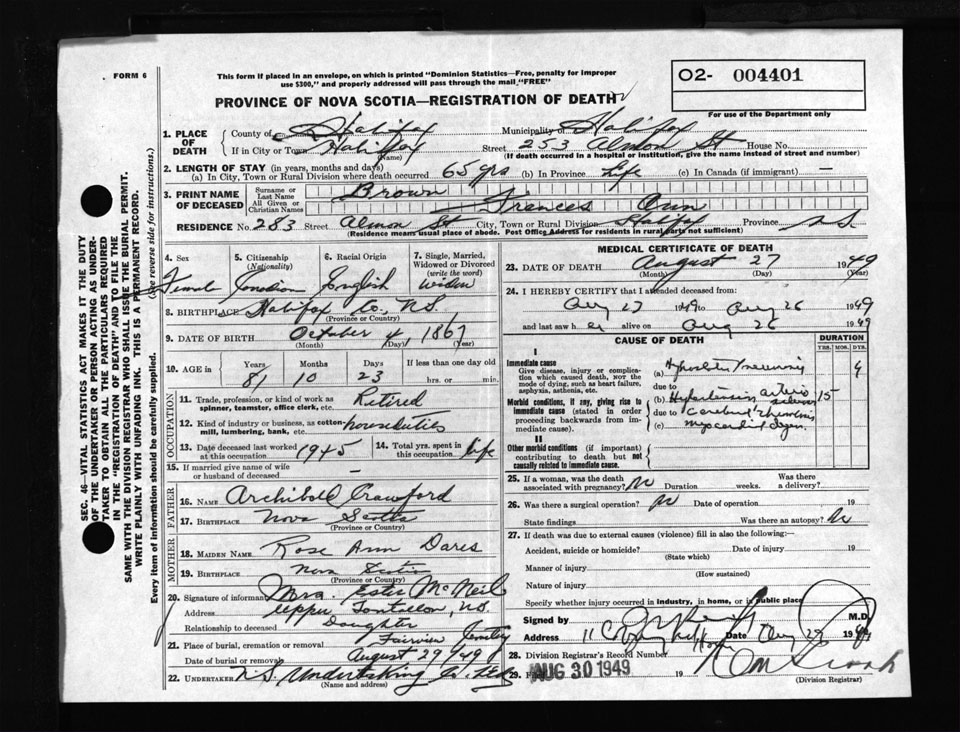 FORM 6
This form if placed in an envelope, on which is printed "Dominion Statistics—Free, penalty for improper
use $300," and properly addressed will pass through the mail "FREE"
O2- 004401
For use of the Department only
PROVINCE OF NOVA SCOTIA—REGISTRATION OF DEATH
1. PLACE OF DEATH County of Halifax Municipality of Halifax
If in City or Town Halifax (Name) Street 253 Almon St House No.
(If death occurred in a hospital or institution, give the name instead of street and number)
2. LENGTH OF STAY (in years, months and days)
(a) In City, Town or Rural Division where death occurred 65 yrs (b) In Province Life (c) In Canada (if immigrant) —
3. PRINT NAME OF DECEASED Surname or Last Name Brown
All Given or Christian Names Frances Ann
RESIDENCE No. 283 Street Almon St City, Town or Rural Division Halifax Province N.S.
(Residence means usual place of abode. Post Office Address for residents in rural parts not sufficient)
4. Sex 5. Citizenship (Nationality) 6. Racial Origin 7. Single, Married, Widowed or Divorced (write the word)
Female Canadian English Widow
8. BIRTHPLACE Halifax Co., N.S.
(Province or Country)
9. DATE OF BIRTH October 4 1867
(Month) (Day) (Year)
10. AGE in Years Months Days If less than one day old
81 10 23 hrs. or min.
OCCUPATION
11. Trade, profession, or kind of work as spinner, teamster, office clerk, etc. Retired
12. Kind of industry or business, as cotton-mill, lumbering, bank, etc. houseduties
13. Date deceased last worked at this occupation 1945 14. Total yrs. spent in this occupation life
15. If married give name of wife or husband of deceased —
FATHER
16. NAME Archibald Crawford
17. BIRTHPLACE Nova Scotia
(Province or Country)
MOTHER
18. MAIDEN NAME Rose Ann Dares
19. BIRTHPLACE Nova Scotia
(Province or Country)
20. Signature of informant Mrs. Ester McNeil
Address Upper Tantallon, N.S.
Relationship to deceased Daughter
21. Place of burial, cremation or removal Fairview Cemetery
Date of burial or removal August 29/49
22. UNDERTAKER N.S. Undertaking Co. Ltd
(Name and address)
MEDICAL CERTIFICATE OF DEATH
23. DATE OF DEATH August 27 1949
(Month) (Day) (Year)
24. I HEREBY CERTIFY that I attended deceased from:
Aug 23 1949 to Aug 26 1949
and last saw her alive on Aug 26 1949
CAUSE OF DEATH DURATION
YRS. MOS. DYS.
I
Immediate cause
Give disease, injury or complication which caused death, nor the mode of dying, such as heart failure, asphyxia, asthenia, etc.
(a) Hypostatic Pneumonia 4
due to
Morbid conditions, if any, giving rise to immediate cause (stated in order proceeding backwards from immediate cause).
(b) Hypertension arterio sclerosis 15
due to cerebral
(c) myocardial degen.
II
Other morbid conditions (if important) contributing to death but not causally related to immediate cause.
25. If a woman, was the death associated with pregnancy? No Duration weeks. Was there a delivery?
26. Was there a surgical operation? No Date of operation 19
State findings Was there an autopsy? No
27. If death was due to external causes (violence) fill in also the following:—
Accident, suicide or homicide? Date of injury 19
(State which)
Manner of injury
(How sustained)
Nature of injury
Specify whether injury occurred in industry, in home, or in public place
Signed by M.D.
Address Date Aug 29 1949
28. Division Registrar's Record Number
29. Filed AUG 30 1949 19
(Division Registrar)
SEC. 46—VITAL STATISTICS ACT MAKES IT THE DUTY
OF THE UNDERTAKER OR PERSON ACTING AS UNDER-
TAKER TO OBTAIN ALL THE PARTICULARS REQUIRED
IN THE "REGISTRATION OF DEATH" AND TO FILE THE
SAME WITH THE DIVISION REGISTRAR WHO SHALL ISSUE THE BURIAL PERMIT.
WRITE PLAINLY WITH UNFADING INK. THIS IS A PERMANENT RECORD.
Every item of information should be carefully supplied. (See reverse side for instructions.)